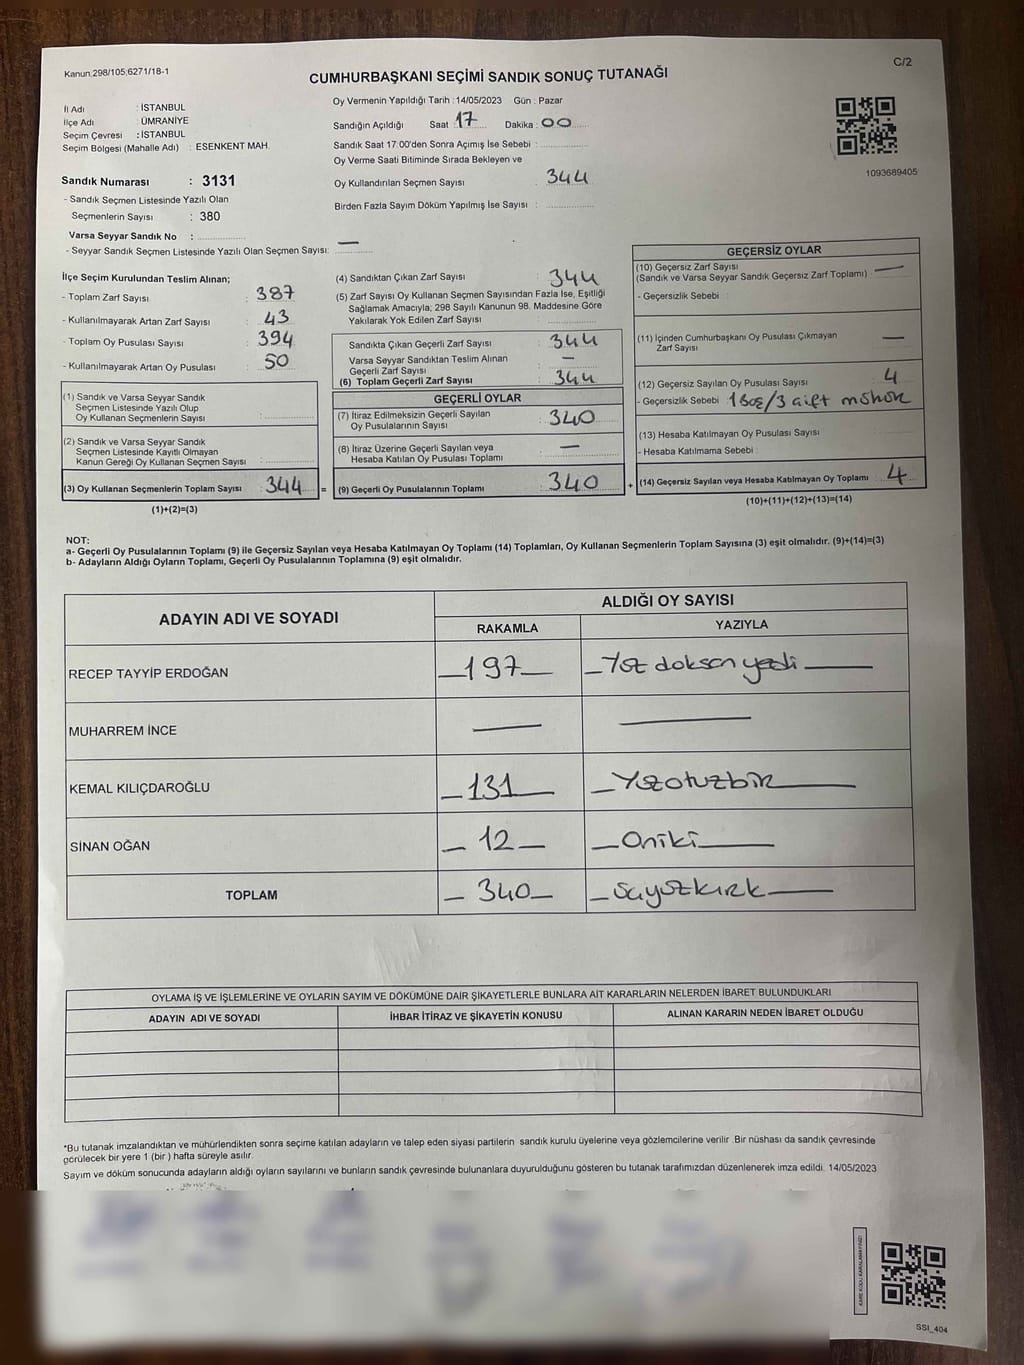 Kanun:298/105;6271/18-1
C/2
CUMHURBAŞKANI SEÇİMİ SANDIK SONUÇ TUTANAĞI
İl Adı : İSTANBUL
İlçe Adı : ÜMRANİYE
Seçim Çevresi : İSTANBUL
Seçim Bölgesi (Mahalle Adı) : ESENKENT MAH.
Oy Vermenin Yapıldığı Tarih : 14/05/2023 Gün : Pazar
Sandığın Açıldığı Saat : 17 Dakika : 00
Sandık Saat 17:00'den Sonra Açımış İse Sebebi :
Oy Verme Saati Bitiminde Sırada Bekleyen ve
Oy Kullandırılan Seçmen Sayısı : 344
Birden Fazla Sayım Döküm Yapılmış İse Sayısı :
1093689405
Sandık Numarası : 3131
- Sandık Seçmen Listesinde Yazılı Olan
Seçmenlerin Sayısı : 380
Varsa Seyyar Sandık No :
- Seyyar Sandık Seçmen Listesinde Yazılı Olan Seçmen Sayısı: —
İlçe Seçim Kurulundan Teslim Alınan;
- Toplam Zarf Sayısı : 387
- Kullanılmayarak Artan Zarf Sayısı : 43
- Toplam Oy Pusulası Sayısı : 394
- Kullanılmayarak Artan Oy Pusulası : 50
(1) Sandık ve Varsa Seyyar Sandık
Seçmen Listesinde Yazılı Olup
Oy Kullanan Seçmenlerin Sayısı :
(2) Sandık ve Varsa Seyyar Sandık
Seçmen Listesinde Kayıtlı Olmayan
Kanun Gereği Oy Kullanan Seçmen Sayısı :
(3) Oy Kullanan Seçmenlerin Toplam Sayısı : 344 =
(1)+(2)=(3)
(4) Sandıktan Çıkan Zarf Sayısı : 344
(5) Zarf Sayısı Oy Kullanan Seçmen Sayısından Fazla İse, Eşitliği
Sağlamak Amacıyla; 298 Sayılı Kanunun 98. Maddesine Göre
Yakılarak Yok Edilen Zarf Sayısı :
Sandıkta Çıkan Geçerli Zarf Sayısı : 344
Varsa Seyyar Sandıktan Teslim Alınan
Geçerli Zarf Sayısı : —
(6) Toplam Geçerli Zarf Sayısı : 344
GEÇERLİ OYLAR
(7) İtiraz Edilmeksizin Geçerli Sayılan
Oy Pusulalarının Sayısı : 340
(8) İtiraz Üzerine Geçerli Sayılan veya
Hesaba Katılan Oy Pusulası Toplamı : —
(9) Geçerli Oy Pusulalarının Toplamı : 340 +
GEÇERSİZ OYLAR
(10) Geçersiz Zarf Sayısı : —
(Sandık ve Varsa Seyyar Sandık Geçersiz Zarf Toplamı)
- Geçersizlik Sebebi :
(11) İçinden Cumhurbaşkanı Oy Pusulası Çıkmayan
Zarf Sayısı : —
(12) Geçersiz Sayılan Oy Pusulası Sayısı : 4
- Geçersizlik Sebebi : 1 Boş/3 çift mühür
(13) Hesaba Katılmayan Oy Pusulası Sayısı :
- Hesaba Katılmama Sebebi :
(14) Geçersiz Sayılan veya Hesaba Katılmayan Oy Toplamı : 4
(10)+(11)+(12)+(13)=(14)
NOT:
a- Geçerli Oy Pusulalarının Toplamı (9) ile Geçersiz Sayılan veya Hesaba Katılmayan Oy Toplamı (14) Toplamları, Oy Kullanan Seçmenlerin Toplam Sayısına (3) eşit olmalıdır. (9)+(14)=(3)
b- Adayların Aldığı Oyların Toplamı, Geçerli Oy Pusulalarının Toplamına (9) eşit olmalıdır.
ADAYIN ADI VE SOYADI ALDIĞI OY SAYISI
RAKAMLA YAZIYLA
RECEP TAYYİP ERDOĞAN —197— —Yüz doksan yedi—
MUHARREM İNCE — —
KEMAL KILIÇDAROĞLU —131— —Yüzotuzbir—
SİNAN OĞAN —12— —Oniki—
TOPLAM —340— —üçyüzkırk—
OYLAMA İŞ VE İŞLEMLERİNE VE OYLARIN SAYIM VE DÖKÜMÜNE DAİR ŞİKAYETLERLE BUNLARA AİT KARARLARIN NELERDEN İBARET BULUNDUKLARI
ADAYIN ADI VE SOYADI İHBAR İTİRAZ VE ŞİKAYETİN KONUSU ALINAN KARARIN NEDEN İBARET OLDUĞU
*Bu tutanak imzalandıktan ve mühürlendikten sonra seçime katılan adayların ve talep eden siyasi partilerin sandık kurulu üyelerine veya gözlemcilerine verilir. Bir nüshası da sandık çevresinde
görülecek bir yere 1 (bir ) hafta süreyle asılır.
Sayım ve döküm sonucunda adayların aldığı oyların sayılarını ve bunların sandık çevresinde bulunanlara duyurulduğunu gösteren bu tutanak tarafımızdan düzenlenerek imza edildi. 14/05/2023
SSI_404